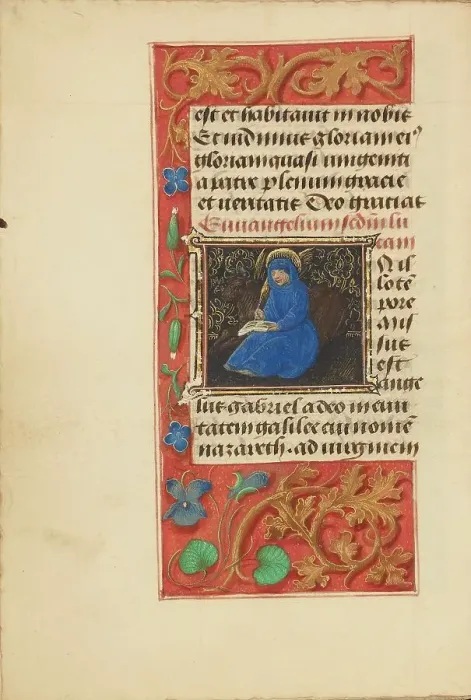 est et habitauit in nobis
Et uidimus gloriam ei⁹
gloriam quasi unigeniti
a patre plenum gracie
et ueritatis Deo gratias
Euuangelium sedm lu
cam
N il
lo tē
pore
mis
sus
est
ange
lus gabriel a deo in ciui
tatem galilee cui nomē
nazareth · ad uirginem